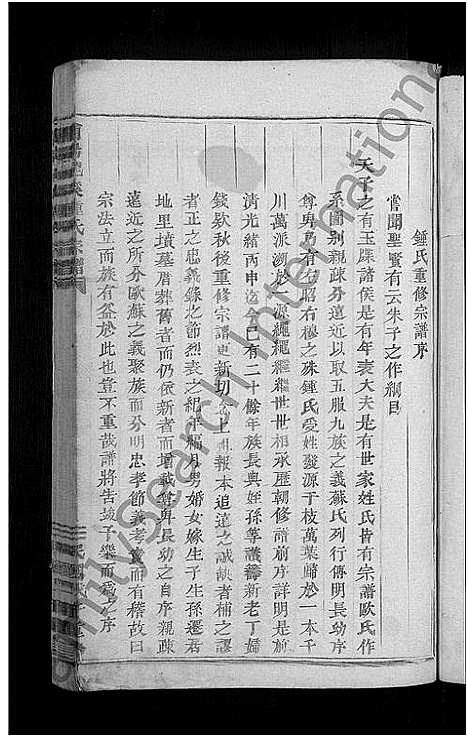 鍾氏重修宗譜序
嘗聞聖賢有云朱子之作綱目
天子之有玉牒諸侯是有年表大夫是有世家姓氏皆有宗譜歐氏作
系圖別親疎分遠近以取五服九族之義蘇氏列行傳明長幼序
尊卑乃有左昭右穆之殊鍾氏受姓發源于枝萬葉歸於一本千
川萬派溯於一源繩繩繼繼世世相承歷朝修譜前序詳明是於
清光緒丙申迄今已有二十餘年族長與姪孫等議籌新老丁婦
錢欵秋後重修宗譜 新切 上 報本追遠之誠缺者補之謬
者正之忠義錄之節烈表之紀 月男婚女嫁生子生孫遷居
地里墳墓厝葬舊者而仍依新者而增載尊卑長幼之自序親疎
遠近之所分歐蘇之義聚族而分明忠孝節義考實而有稽故曰
宗法立而族有益於此也豈不重哉譜將告竣予樂而為之序
鍾氏宗譜
International